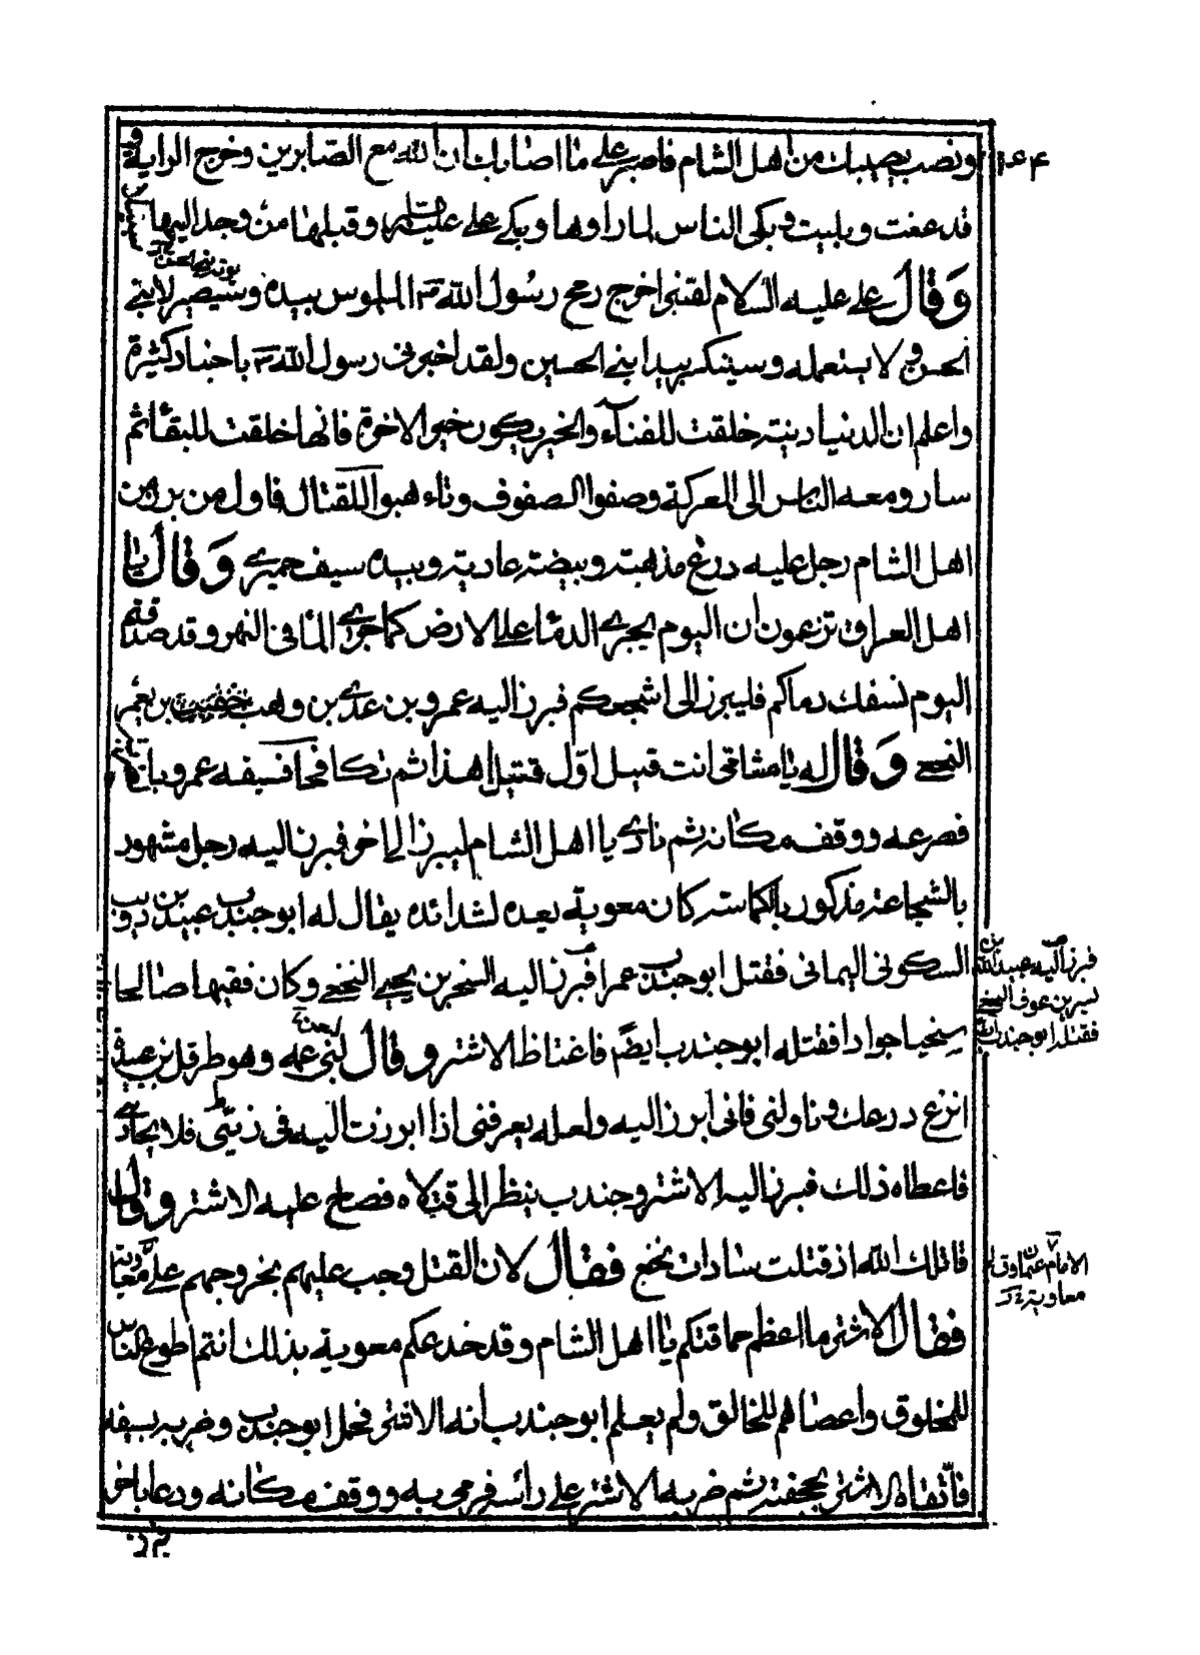 ونصب يصيبك من اهل الشام فاصبر على ما اصابك ان الله مع الصابرين وخرج الراية و
١٤٤
قد عفت وبليت وبكى الناس لما راوها وبكى على عليه السلم وقبلها من وجد اليها
وقال على عليه السلام لقنبر اخرج رمح رسول الله الملموس بيده وسيصير لابنى
الحسن ولا يستعمله وسينكسر بيد ابنى الحسين ولقد اخبرنى رسول الله باخبار كثيرة
واعلم ان الدنيا دنية خلقت للفنآء والخير يكون خير الاخرة فانها خلقت للبقاء ثم
سار ومعه الناس الى المعركة وصفوا الصفوف وتاهبوا للقتال فاول من برز من
اهل الشام رجل عليه درع مذهبة وبيضة عادية وبيده سيف حميرى وقال يا
اهل العراق تزعمون ان اليوم يجرى الدماء على الارض كما جرى الماء فى النهر وقد صدقتم
اليوم نسفك دماكم فليبرز الى اشجعكم فبرز اليه عمرو بن عدى بن وهب بن يعمر
النخعى وقال له يا مشاقى انت قبيل اول قتيل هذا ثم تكافحا فسبقه عمرو
فصرعه ووقف مكانه ثم نادى يا اهل الشام ليبرز الى اخر فبرز اليه رجل مشهور
بالشجاعة مذكور بالكماسة كان معوية يعده لشدائده يقال له ابو جندب عبيد بن ذويب
السكونى اليمانى فقتل ابو جندب عمرا فبرز اليه السخر بن يحيى النخعى وكان فقيها صالحا
فبرز اليه عبيد الله بن
بسر بن عوف النخعى
فقتله ابو جندب
سخيا جوادا فقتله ابو جندب ايضا فاغتاظ الاشتر وقال لبنى عمه وهو طرقل بن عبيدة
انزع درعك وناولنى فانى ابرز اليه ولعله يعرفنى اذا ابرزت اليه فى زيتى فلا يحاربنى
فاعطاه ذلك فبرز اليه الاشتر وجندب ينظر الى قتلاه فصاح عليه الاشتر وقال
قاتلك الله اذ قتلت سادات نخع فقال لان القتل وجب عليهم بخروجهم على معاوية
الامام عثمان وق
معاوية
فقال الاشتر ما اعظم حماقتكم يا اهل الشام وقد خدعكم معوية بذلك انتم اطوع الناس
للمخلوق واعصاهم للخالق ولم يعلم ابو جندب انه الاشتر فحمل ابو جندب وضربه بسيفه
فاتقاه الاشتر بجحفته ثم ضربه الاشتر على رأسه فرمى به ووقف مكانه ودعا باخر